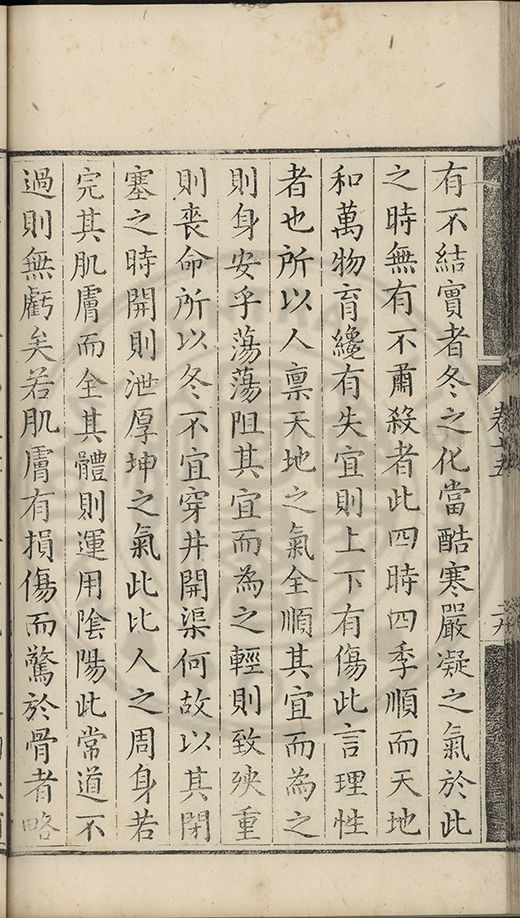 有不結實者冬之化當酷寒嚴凝之氣於此
之時無有不肅殺者此四時四季順而天地
和萬物育纔有失宜則上下有傷此言理性
者也所以人禀天地之氣全順其宜而為之
則身安乎蕩蕩阻其宜而為之輕則致殃重
則喪命所以冬不宜穿井開渠何故以其閉
塞之時開則泄厚坤之氣此比人之周身若
完其肌膚而全其體則運用隂陽此常道不
過則無虧矣若肌膚有損傷而驚於骨者略
卷十五